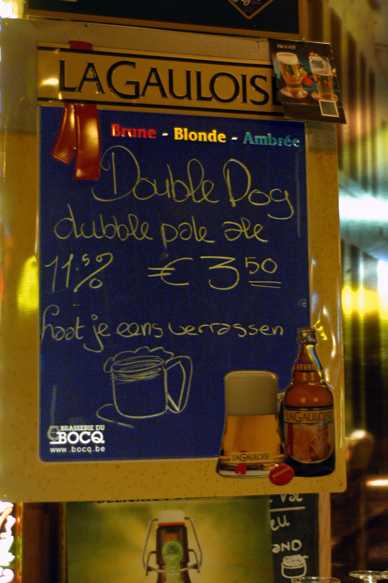 LAGAULOISE
Brune - Blonde - Ambrée
Double Dog
dubble pale ale
11.5% € 3,50
Laat je eens verrassen
BRASSERIE DU
BOCQ
www.bocq.be
LAGAULOISE
LAGAULOISE